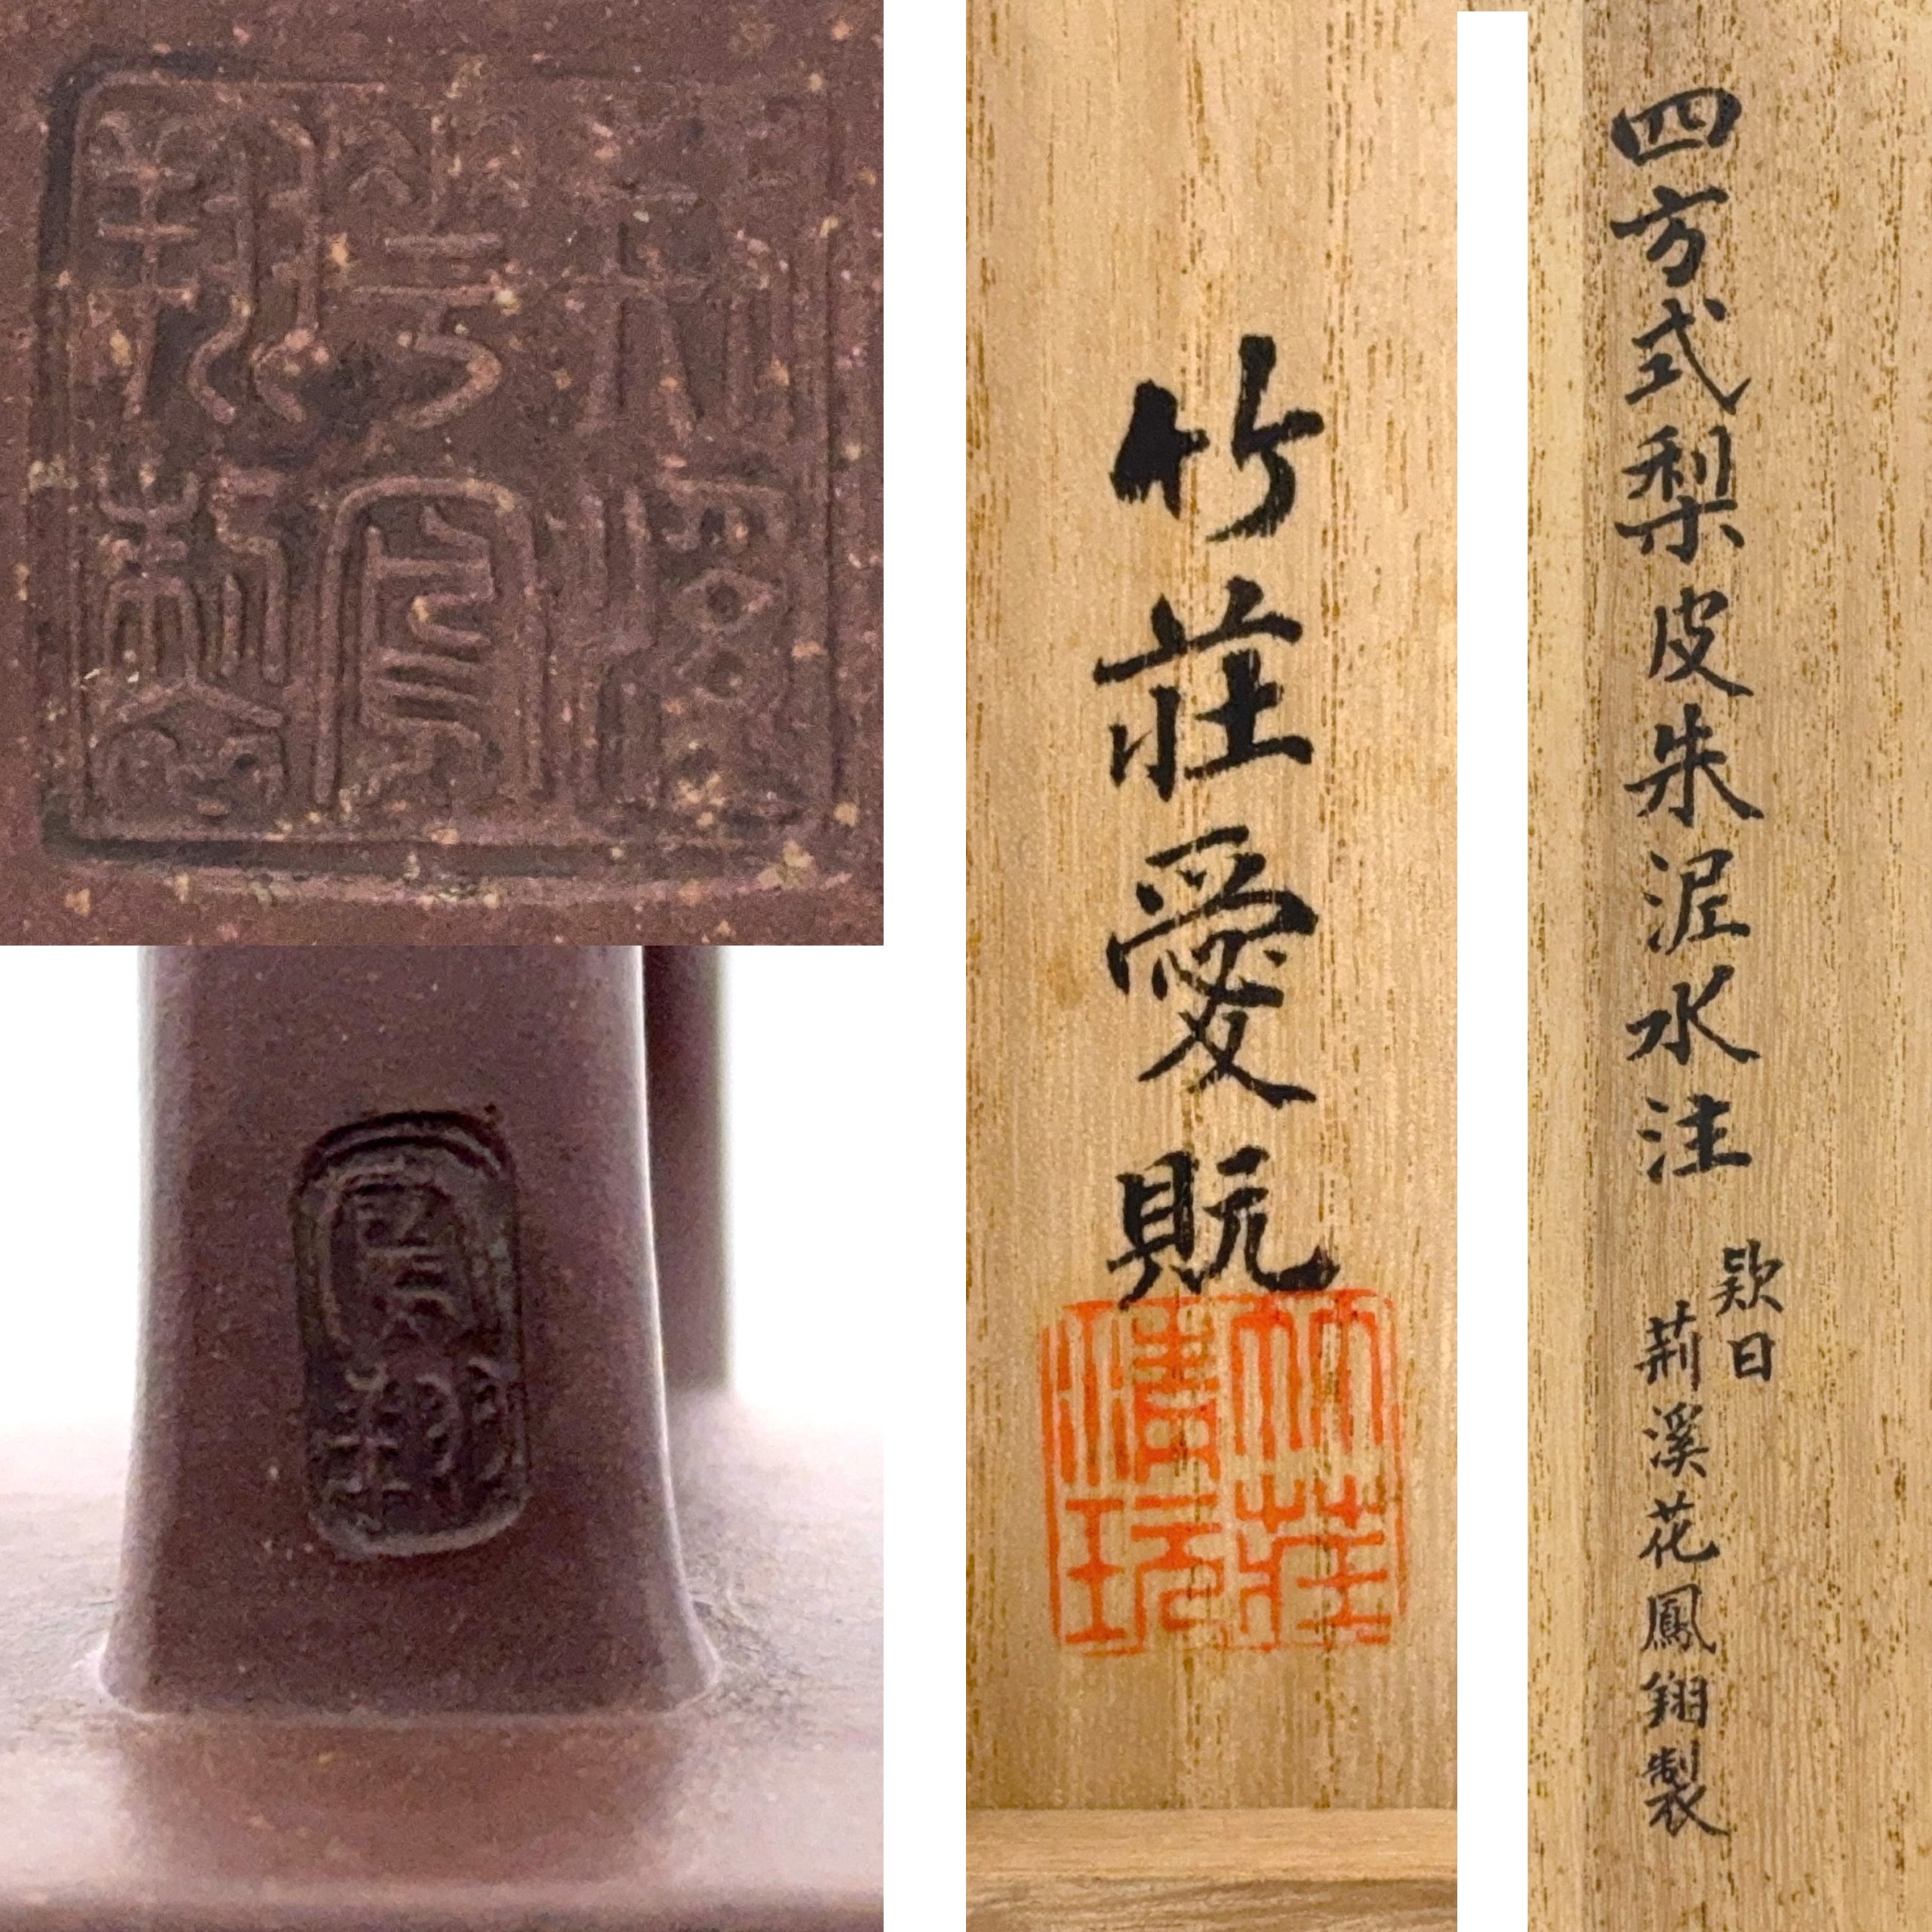 荊溪華鳳翔製
鳳翔
竹莊愛貦
竹莊清玩
四方式梨皮朱泥水注
欵曰
荊溪花鳳翔製